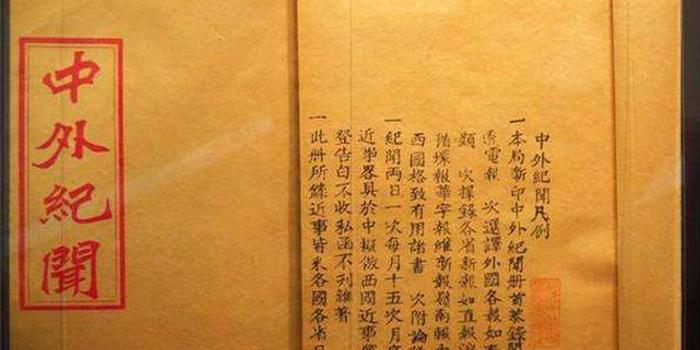 中外紀聞
中外紀聞凡例
一本局新印中外紀聞冊首恭錄
透電報 次選譯外國各報如
類 次擇錄各省新報如直報
循環報華字報維新報嶺南報
西國格致有用諸書 次附論
一紀聞兩日一次每月十五次月
近事畧具於中擬倣西國近事
登告白不收私函不刊雜著
一此冊所錄近事皆采各國各省日